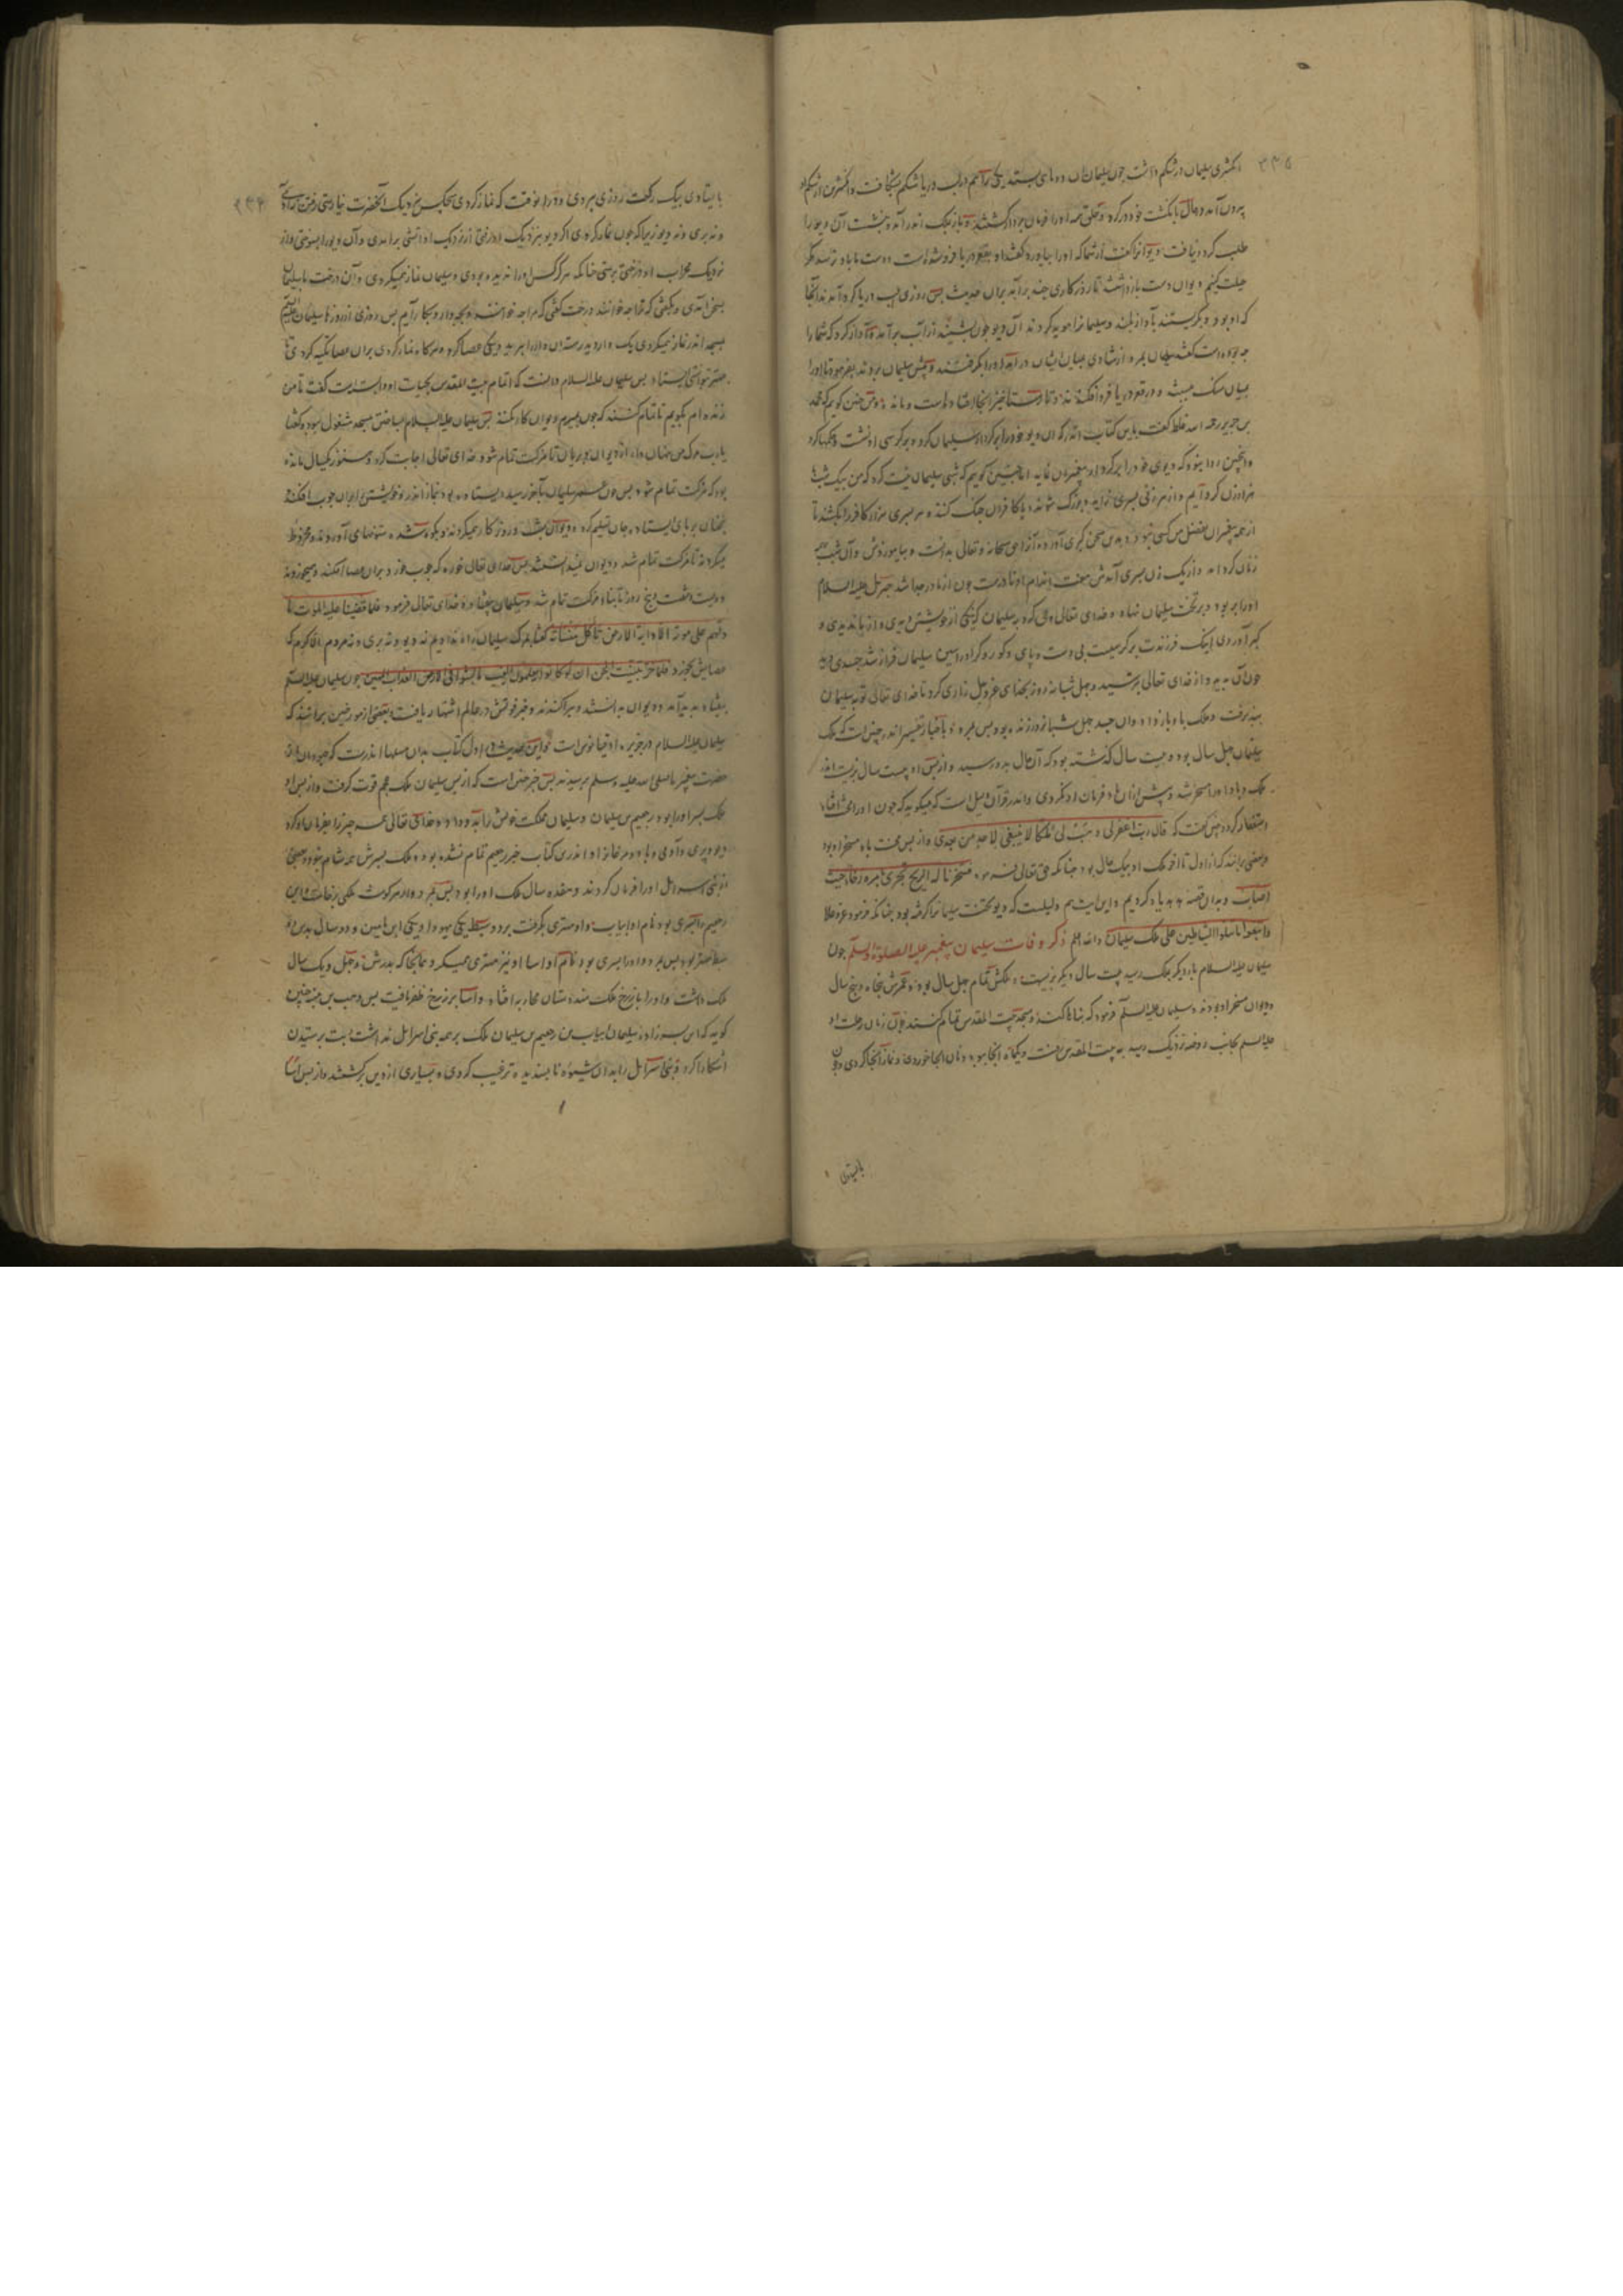 انکشتری سلیمان در شکم داشت چون سلیمان آن دو ماهی بستد یکی را هم بر لب دریا شکم بشکافت و انکشترین از شکم او
بیرون آمد و حال بانکشت خود در کرد و خلق همه او را فرمان بردار کشتند و باز بملک اندر آمد و بنشست آن دیو را
طلب کرد و نیافت دیوانرا گفت از شما که او را بیاورد گفتند او بقعر دریا فرو شده است دست ما باو نرسد مکر
حیلت کنیم دیوان دست باز داشتند تا روزکاری چند برآمد بران حدیث پس روزی بلب دریا کرد آمدند آنجا
که او بود و بکریستند بآواز بلند و سلیمانرا مویه کردند آن دیو چون بشنید از آب برآمد و آواز کرد که شما را
چه بوده است گفتند سلیمان بمرد از شادی بمیان ایشان در آمد او را بکرفتند و پیش سلیمان بردند بفرمود تا او را
بمیان سنک ببستند و در قعر دریا فرو افکندند و تا رستاخیز آنجا افتاده است و ماند و من چنین کویم که محمد
بن جریر رحمه الله غلط گفت باین کتاب اندر که آن دیو خود را بر کردار سلیمان کرد و بر کرسی او نشست و حکمها کرد
و اینچنین روا نبود که دیوی خود را بر کردار پیغمبران نماید اما چنین کویم که شبی سلیمان نیت کرد که من بیک شب با
هزار زن کرد آیم و از هر زنی پسری زاید و بزرک شوند و با کافران جنک کنند و هر پسری هزار کافر را بکشند تا
از همه پیغمبران بفضل من کسی نبود و بدین سخن کبری آورده از آن حق سبحانه و تعالی بدانست و بیاموزدش و آن شب همه
زنان کرد آمد و از یک زن پسری آمدش هفت اندام او نادرست چون از مادر جدا شد جبرئیل علیه السلام
او را ببرد و بر تخت سلیمان نهاد و خدای تعالی وحی کرد به سلیمان که نیکی از خویشتن دیدی و از ما ندیدی و
کبر آوردی اینک فرزندت بر کرسیست بی دست و پای و کور و کر او را ببین سلیمان فراز شد جسدی
چون آن بدید و از خدای تعالی بترسید و چهل شبانه روز بخدای عز و جل زاری کرد تا خدای تعالی توبه سلیمان
بپذیرفت و ملک باو باز داد و آن جسد چهل شبانروز زنده بود پس بمرد و باخبار تفسیر اندر چنین است که ملک
سلیمان چهل سال بود و بیست سال کذشته بود که آن حال بدو رسید و از پس او بیست سال بزیست اندر
ملک و باد او را مسخر شد و پیش از آن باد فرمان او نکردی و اندر قرآن دلیل است که میکوید که چون او را محنت افتاد
استغفار کرد و پس گفت که قال رب اغفر لی وهب لی ملکا لا ینبغی لاحد من بعدی و از پس محنت باد مسخر او بود
و بعضی برانند که از اول تا آخر ملک او بیک حال بود چنانکه حق تعالی فرموده فسخرنا له الریح تجری بامره رخاء حیث
اصاب و بدان قصه بدید یاد کردیم و این ایت هم دلیلست که دیو تخت سلیمانرا کرفته بود چنانکه فرمود عز و علا
واتبعوا ما تتلوا الشیاطین علی ملک سلیمان والله اعلم ذکر وفات سلیمان پیغمبر علیه الصلوة والسلم چون
سلیمان علیه السلام بار دیکر بملک رسید بیست سال دیکر بزیست و ملکش تمام چهل سال بود و عمرش پنجاه و پنج سال
و دیوان مسخر او بودند و سلیمان علیه السلم فرمود که بناها کنند و مسجد بیت المقدس تمام کنند چون زمان رحلت او
علیه السلم بجانب روضه نزدیک رسید به بیت المقدس رفت و یکماه آنجا بود و نان آنجا خوردی و نماز آنجا کردی و چون
بایستادی
۲۳۵
بایستادی بیک رکعت روزی ببردی و در آن وقت که نماز کردی هیچکس نزدیک آنحضرت نیارستی رفتن نه آدمی
و نه پری و نه دیو زیرا که چون نماز کردی اکر دیو بنزدیک او رفتی از نزدیک او آتشی برآمدی و آن دیو را بسوختی و از
نزدیک محراب او درختی برستی چنانکه هرکز کس او را ندیده بودی و سلیمان نماز همیکردی و آن درخت با سلیمان
بسخن آمدی و بگفتی که ترا چه خوانند درخت گفتی که مرا چه خوانند و بچه دارو بکار آیم پس روزی از روزها سلیمان علیه السلم
بمسجد اندر نماز همیکردی یک دارو برسته آن دارو را ببرید و یکی عصا کرد و هرکاه نماز کردی بران عصا تکیه کردی تا
نتوانستی ایستاد پس سلیمان علیه السلام دانست که اتمام بیت المقدس بحیات او وابسته است گفت تا من
زنده ام بکویم تا تمام کنند که چون بمیرم دیوان کار نکنند پس سلیمان علیه السلام بساختن مسجد مشغول ببود و گفتا
یا رب مرک من پنهان دار از دیوان و پریان تا مزکت تمام شود خدای تعالی اجابت کرد و هنوز یکسال مانده
بود که مزکت تمام شود پس چون عمر سلیمان بآخر رسید ایستاده بود بنماز اندر و خویشتن بران چوب افکنده
همچنان بر پای ایستاده جان تسلیم کرد و دیوان شب و روز کار همیکردند و بکوه شده ستونهای آوردند و مخروط
میکردند تا مزکت تمام شد و دیوان نمیدانستند پس خدای تعالی خورنده که چوب خورد بران عصا افکند و همیخوردند
و مسجد تمام شد و سلیمان بیفتاد و خدای تعالی فرمود فلما قضینا علیه الموت ما
دلهم علی موته الا دابة الارض تأکل منسأته گفتا بمرک سلیمان راه نداد هم نه دیو و نه پری و نه مردم الا کرم که
عصایش بخورد فلما خر تبینت الجن ان لو کانوا یعلمون الغیب ما لبثوا فی الارض العذاب المهین چون سلیمان علیه السلم
بیفتاد پدید آمد و دیوان بدانستند و بپراکندند و خبر فوتش در عالم اشتهار یافت و بعضی از مورخین برآنند که
سلیمان علیه السلام در جزیره اوقیانوس است و این حدیث در اول کتاب بدان مسلها اندرست که جهودان از
حضرت پیغمبر ما صلی الله علیه وسلم پرسیدند پس خبر چنین است که از پس سلیمان ملک عجم قوت کرفت و از پس او
ملک پسر او را بود رحبعم بن سلیمان و سلیمان مملکت خویش را بدو داد و خدای تعالی همه چیز را بفرمان او کرد
دیو و پری و آدمی و باد و مرغانرا و اندرین کتاب خبر رحبعم تمام نشده بود و ملک پسرش همه شام بود و جمیع
از بنی اسرائیل او را فرمان کردند و هفده سال ملک او را بود پس بمرد
رحبعم را پسری بود نام او ابیاب و او مهتری بکرفت بر دو سبط یکی یهودا و یکی ابن یامین و دو سال بدین دو
سبط مهتر بود پس بمرد و او را پسری بود نام او اسا او نیز مهتری همیکرد همانجا که پدرش و چهل و یک سال
ملک داشت و او را با زرخ ملک هندوستان محاربه افتاد و اسا بر زرخ ظفر یافت پس وهب بن منبه چنین
کوید که این پسرزاده سلیمان ابیاب بن رحبعم بن سلیمان ملک بر همه بنی اسرائیل نداشت بت پرستیدن
آشکارا کرد و بنی اسرائیل را بدان شیوه ناپسندیده ترغیب کردی و بسیاری از دین برکشتند و از پس ابیا